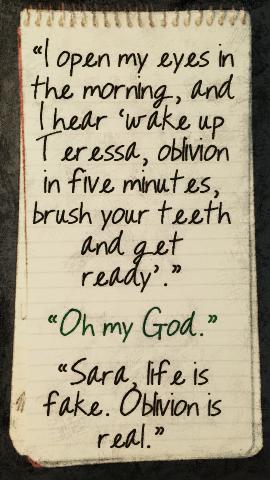 “I open my eyes in
the morning, and
I hear ‘wake up
Teressa, oblivion
in five minutes,
brush your teeth
and get
ready’.”
“Oh my God.”
“Sara, life is
fake. Oblivion is
real.”